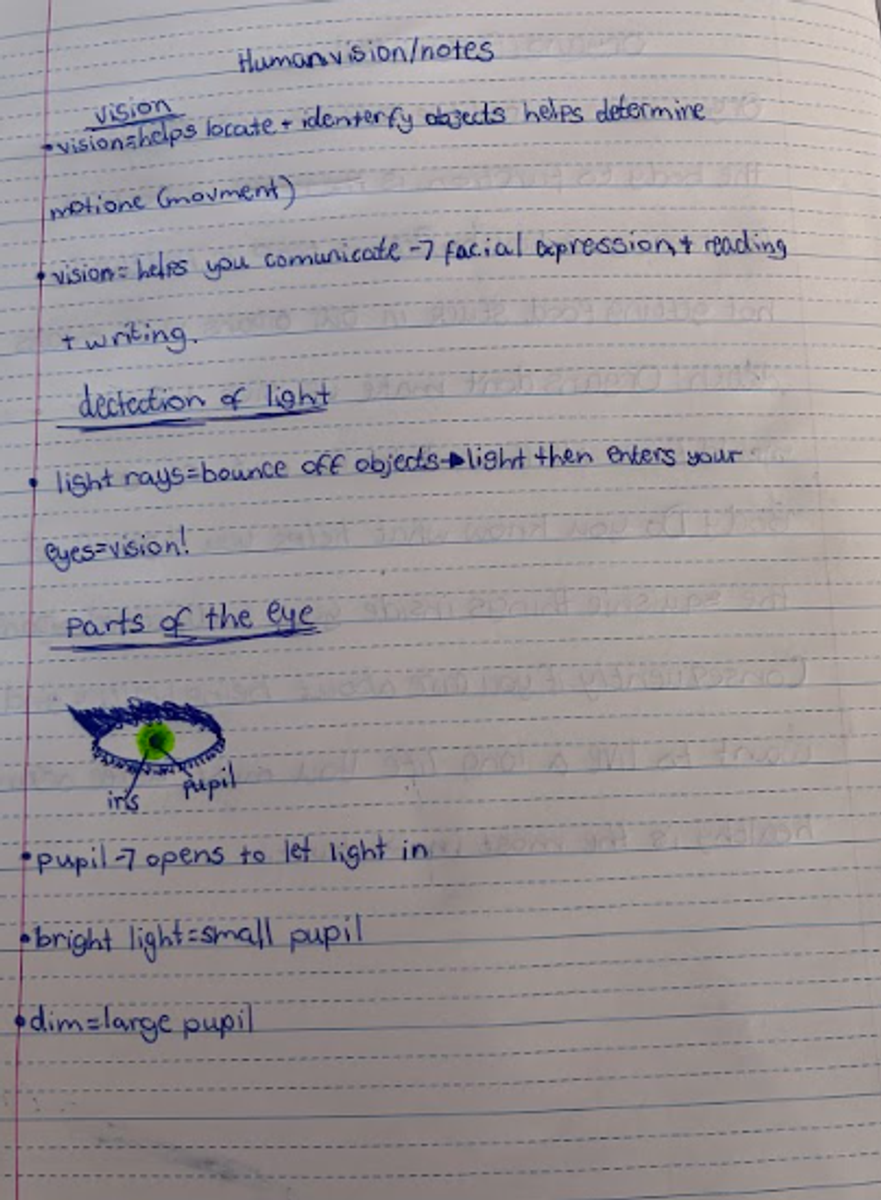 Human vision/notes
vision
• vision = helps locate + identerfy objects helps determine
motione (movment)
• vision = helps you comunicate → facial expression, + reading
+ writing.
dectection of light
• light rays = bounce off objects → light then enters your
eyes = vision!
parts of the eye
iris pupil
• pupil → opens to let light in
• bright light = small pupil
• dim = large pupil